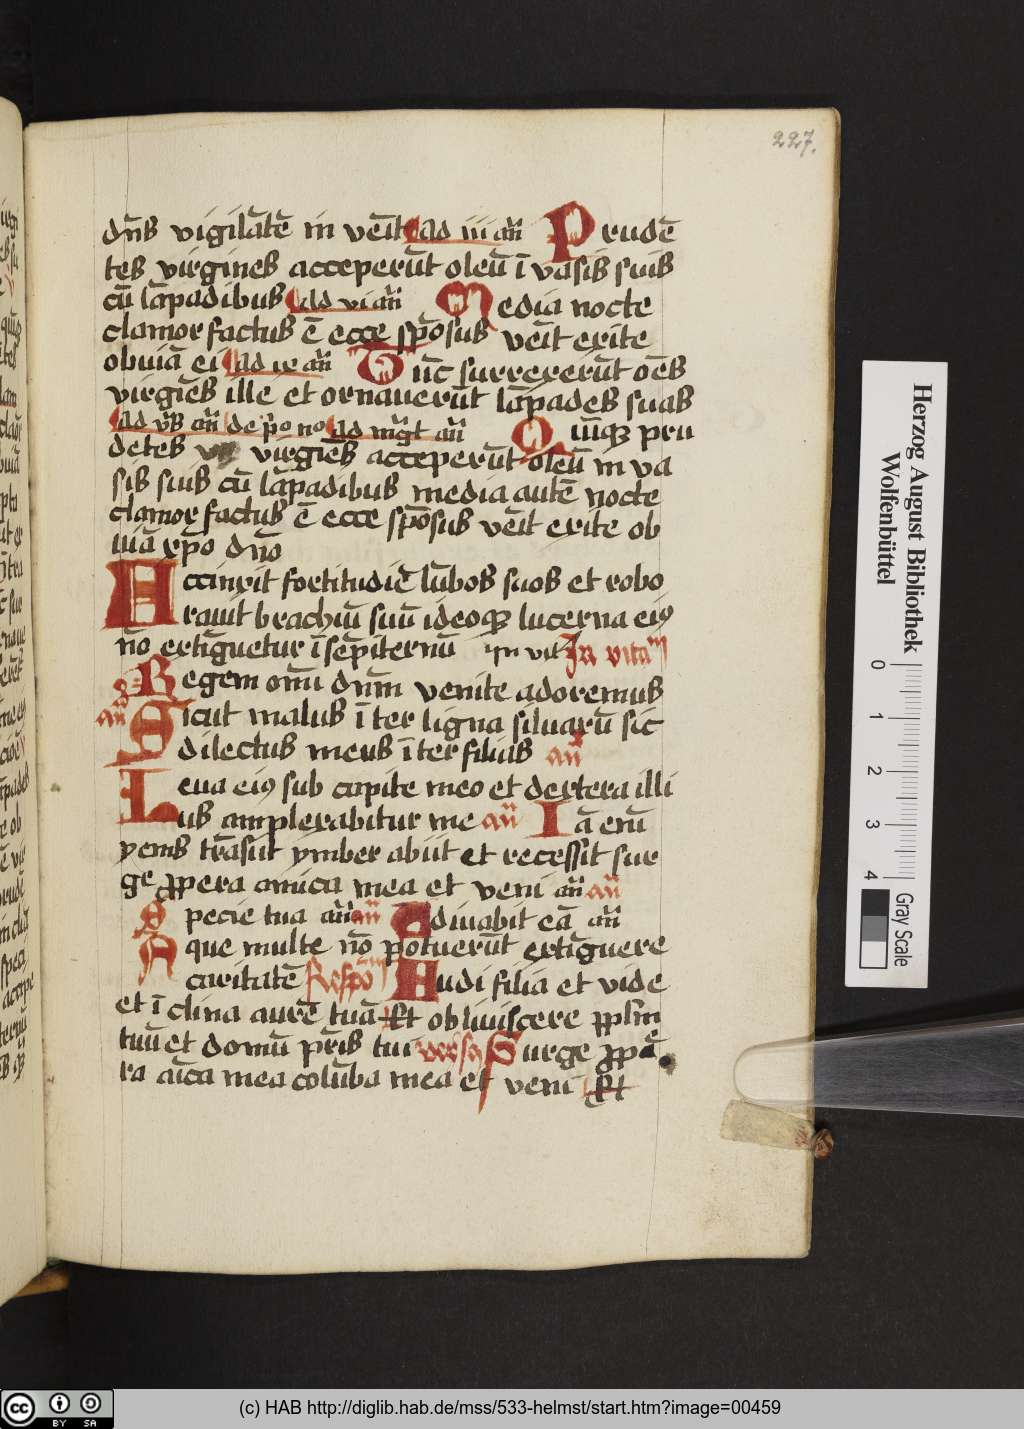 227.
dn̄s vigilātē in venīt Ad iii an̄ Prudē
tes virgines acceperūt oleū ī vasis suis
cū lāpadibus Ad vi an̄ Media nocte
clamor factus ē ecce spōsus venīt exite
obuiā ei Ad ix an̄ Tūc surrexerūt oēs
virgīes ille et ornauerūt lāpades suas
Ad vs̄ an̄ de pō nō Ad mḡt an̄ Quīqz pru
detes virgīes acceperūt oleū in va
sis suis cū lāpadibus media autē nocte
clamor factus ē ecce spōsus venīt exite ob
uiā xpō dn̄o
Accinxit fortitudīe lūbos suos et robo
rauit brachiū suū ideoqz lucerna ei9
nō extīguetur ī sēpiternū In vit In vita
Regem om̄ū dn̄m venite adoremus
an̄ Sicut malus īter ligna siluarū sic
dilectus meus īter filias an̄
Leua ei9 sub capite meo et dextera illi
us amplexabitur me an̄ Iā enī
yems trāsiit ymber abiit et recessit sur
ge ꝓpera amica mea et veni an̄ an̄
Specie tua an̄ an̄ Adiuabit eā an̄
Aque multe nō potuerūt extīguere
caritatē Respō Audi filia et vide
et īclina aurē tuā Et obliuiscere ppl̄m
tuū et domū pr̄is tui versꝯ Surge ꝓpe
ra aīca mea colūba mea et veni Et
Herzog August Bibliothek
Wolfenbüttel
0 1 2 3 4
Gray Scale
cc BY SA
(c) HAB http://diglib.hab.de/mss/533-helmst/start.htm?image=00459